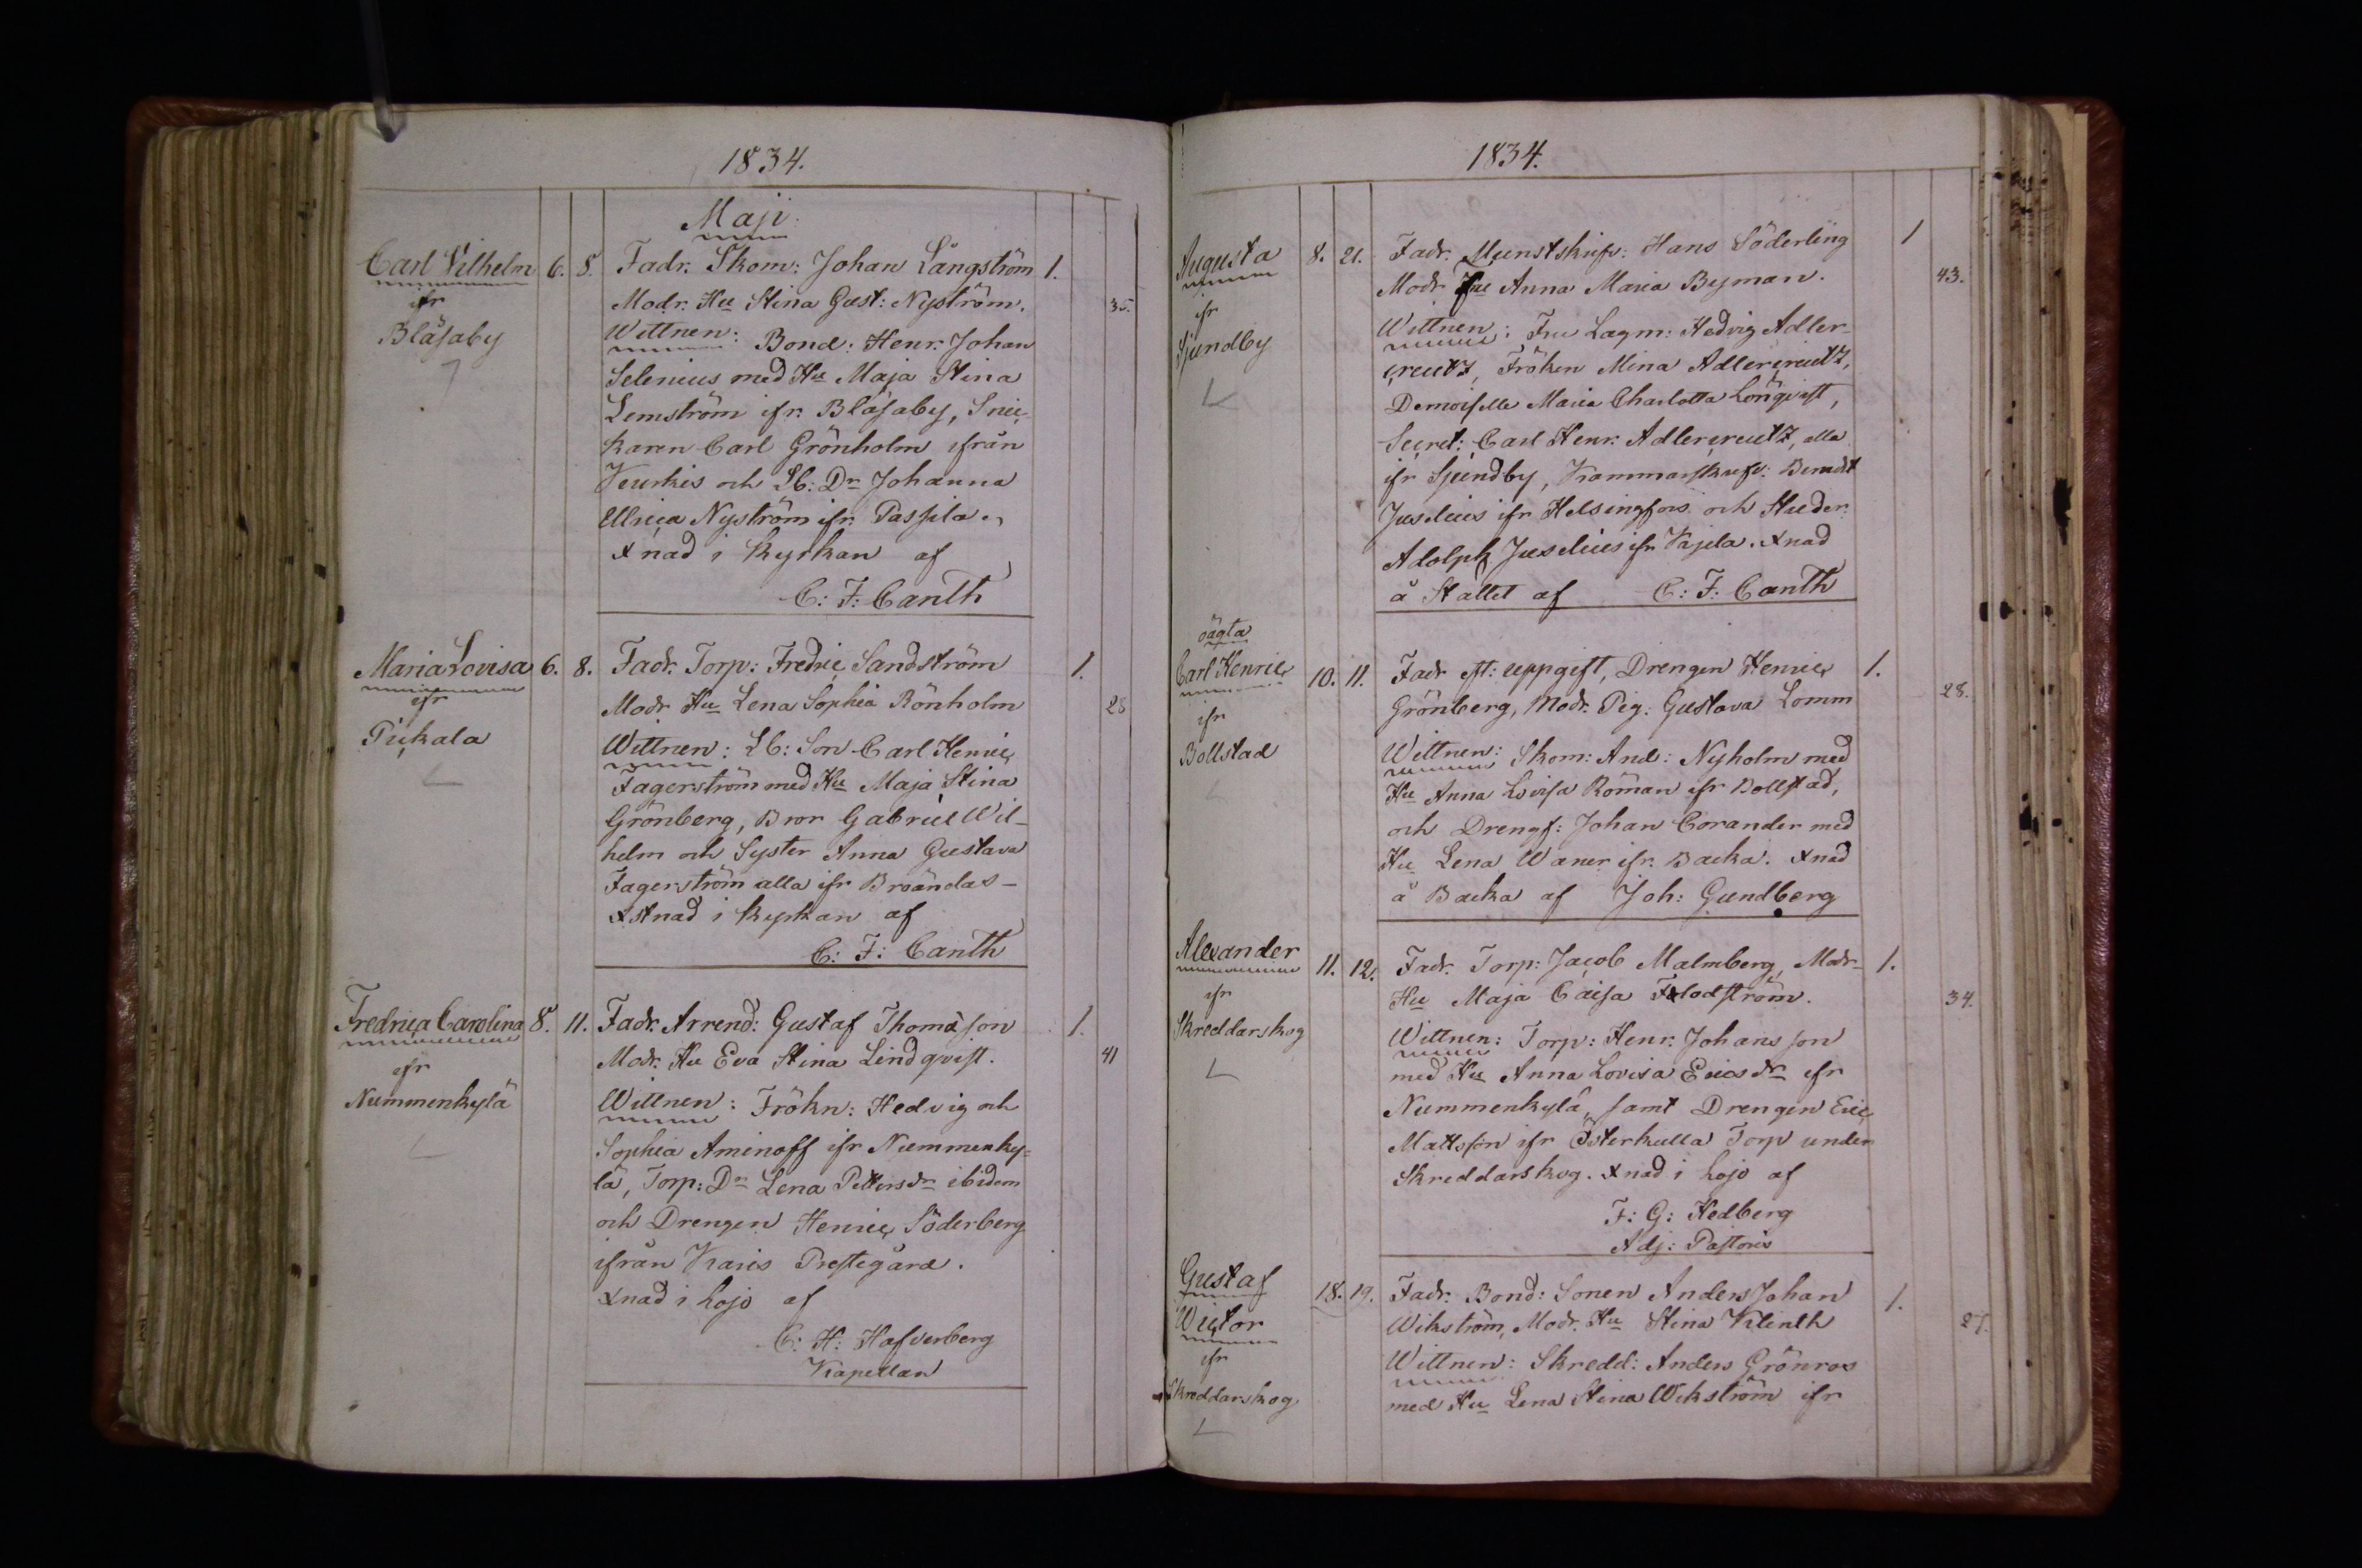 1834.
Maji
Carl Vilhelm 6. 8. Fadr. Skom: Johan Långström 1.
ifr Modr. Hu Stina Gust: Nyström. 35.
Blåsaby Wittnen: Bond: Henr. Johan
Selenius med Hu Maja Stina
Lemström ifr. Blåsaby, Snic
karen Carl Grönholm ifrån
Kurkis och Sb: Dr Johanna
Ulrica Nyström ifr. Passila.
Xnad i kyrkan af
C: F: Canth
Maria Lovisa 6. 8. Fadr. Torp: Fredric Sandström 1.
ifr Modr. Hu Lena Sophia Rönholm 28
Pickala Wittnen: Lb: Son Carl Henric
Fagerström med Hu Maja Stina
Grönberg, Bror Gabriel Wil-
helm och Syster Anna Gustava
Fagerström alla ifr Broändas-
Xstnad i kyrkan af
C: F: Canth
Fredrica Carolina 8. 11. Fadr. Arrend: Gustaf Thomasson 1.
ifr Modr. Hu Eva Stina Lindqvist. 41
Nummenkylä Wittnen: Frökn: Hedvig och
Sophia Aminoff ifr Nummenky=
lä, Torp: Dr Lena Pettersdr ibidem
och Drengen Henric Söderberg
ifrån Karis Prestegård.
Xnad i Lojo af
C: H: Hafverberg
Kapellan
1834.
Augusta 8. 21. Fadr. Munstskrifv: Hans Söderling 1
ifr Modr Fru Anna Maria Byman. 43.
Sjundby Wittnen: Fru Lagm: Hedvig Adler-
creutz, Fröken Mina Adlercreutz,
Demoiselle Maria Charlotta Lönqvist,
Secret: Carl Henr. Adlercreutz, alla
ifr Sjundby, Kammarskrifv: Berndt
Juselius ifr Helsingfors och Studer.
Adolph Juselius ifr Vajela. Xnad
å Stället af C: F: Canth
oägta
Carl Henric 10. 11. Fadr eft: uppgift, Drengen Henric 1.
ifr Grönberg, Modr. Pig: Gustava Lomm 28.
Bollstad Wittnen: Skom: And: Nyholm med
Hu Anna Lovisa Röman ifr Bollstad,
och Drengf: Johan Corander med
Hu Lena Waner ifr. Backa. Xnad
å Backa af Joh: Gundberg
Alexander 11. 12. Fadr. Torp: Jacob Malmberg, Modr- 1.
ifr Hu Maja Caisa Flodström. 34.
Skreddarskog Wittnen: Torp: Henr. Johansson
med Hu Anna Lovisa Ericsdr ifr
Nummenkylä, samt Drengen Eric
Mattsson ifr Österkulla Torp under
Skreddarskog. Xnad i Lojo af
F: G: Hedberg
Adj: Pastoris
Gustaf 18. 19. Fadr. Bond: Sonen Anders Johan 1.
Wictor Wikström, Modr. Hu Stina Klinth 27.
ifr Wittnen: Skredd: Anders Grönros
Skreddarskog med Hu Lena Stina Wikström ifr